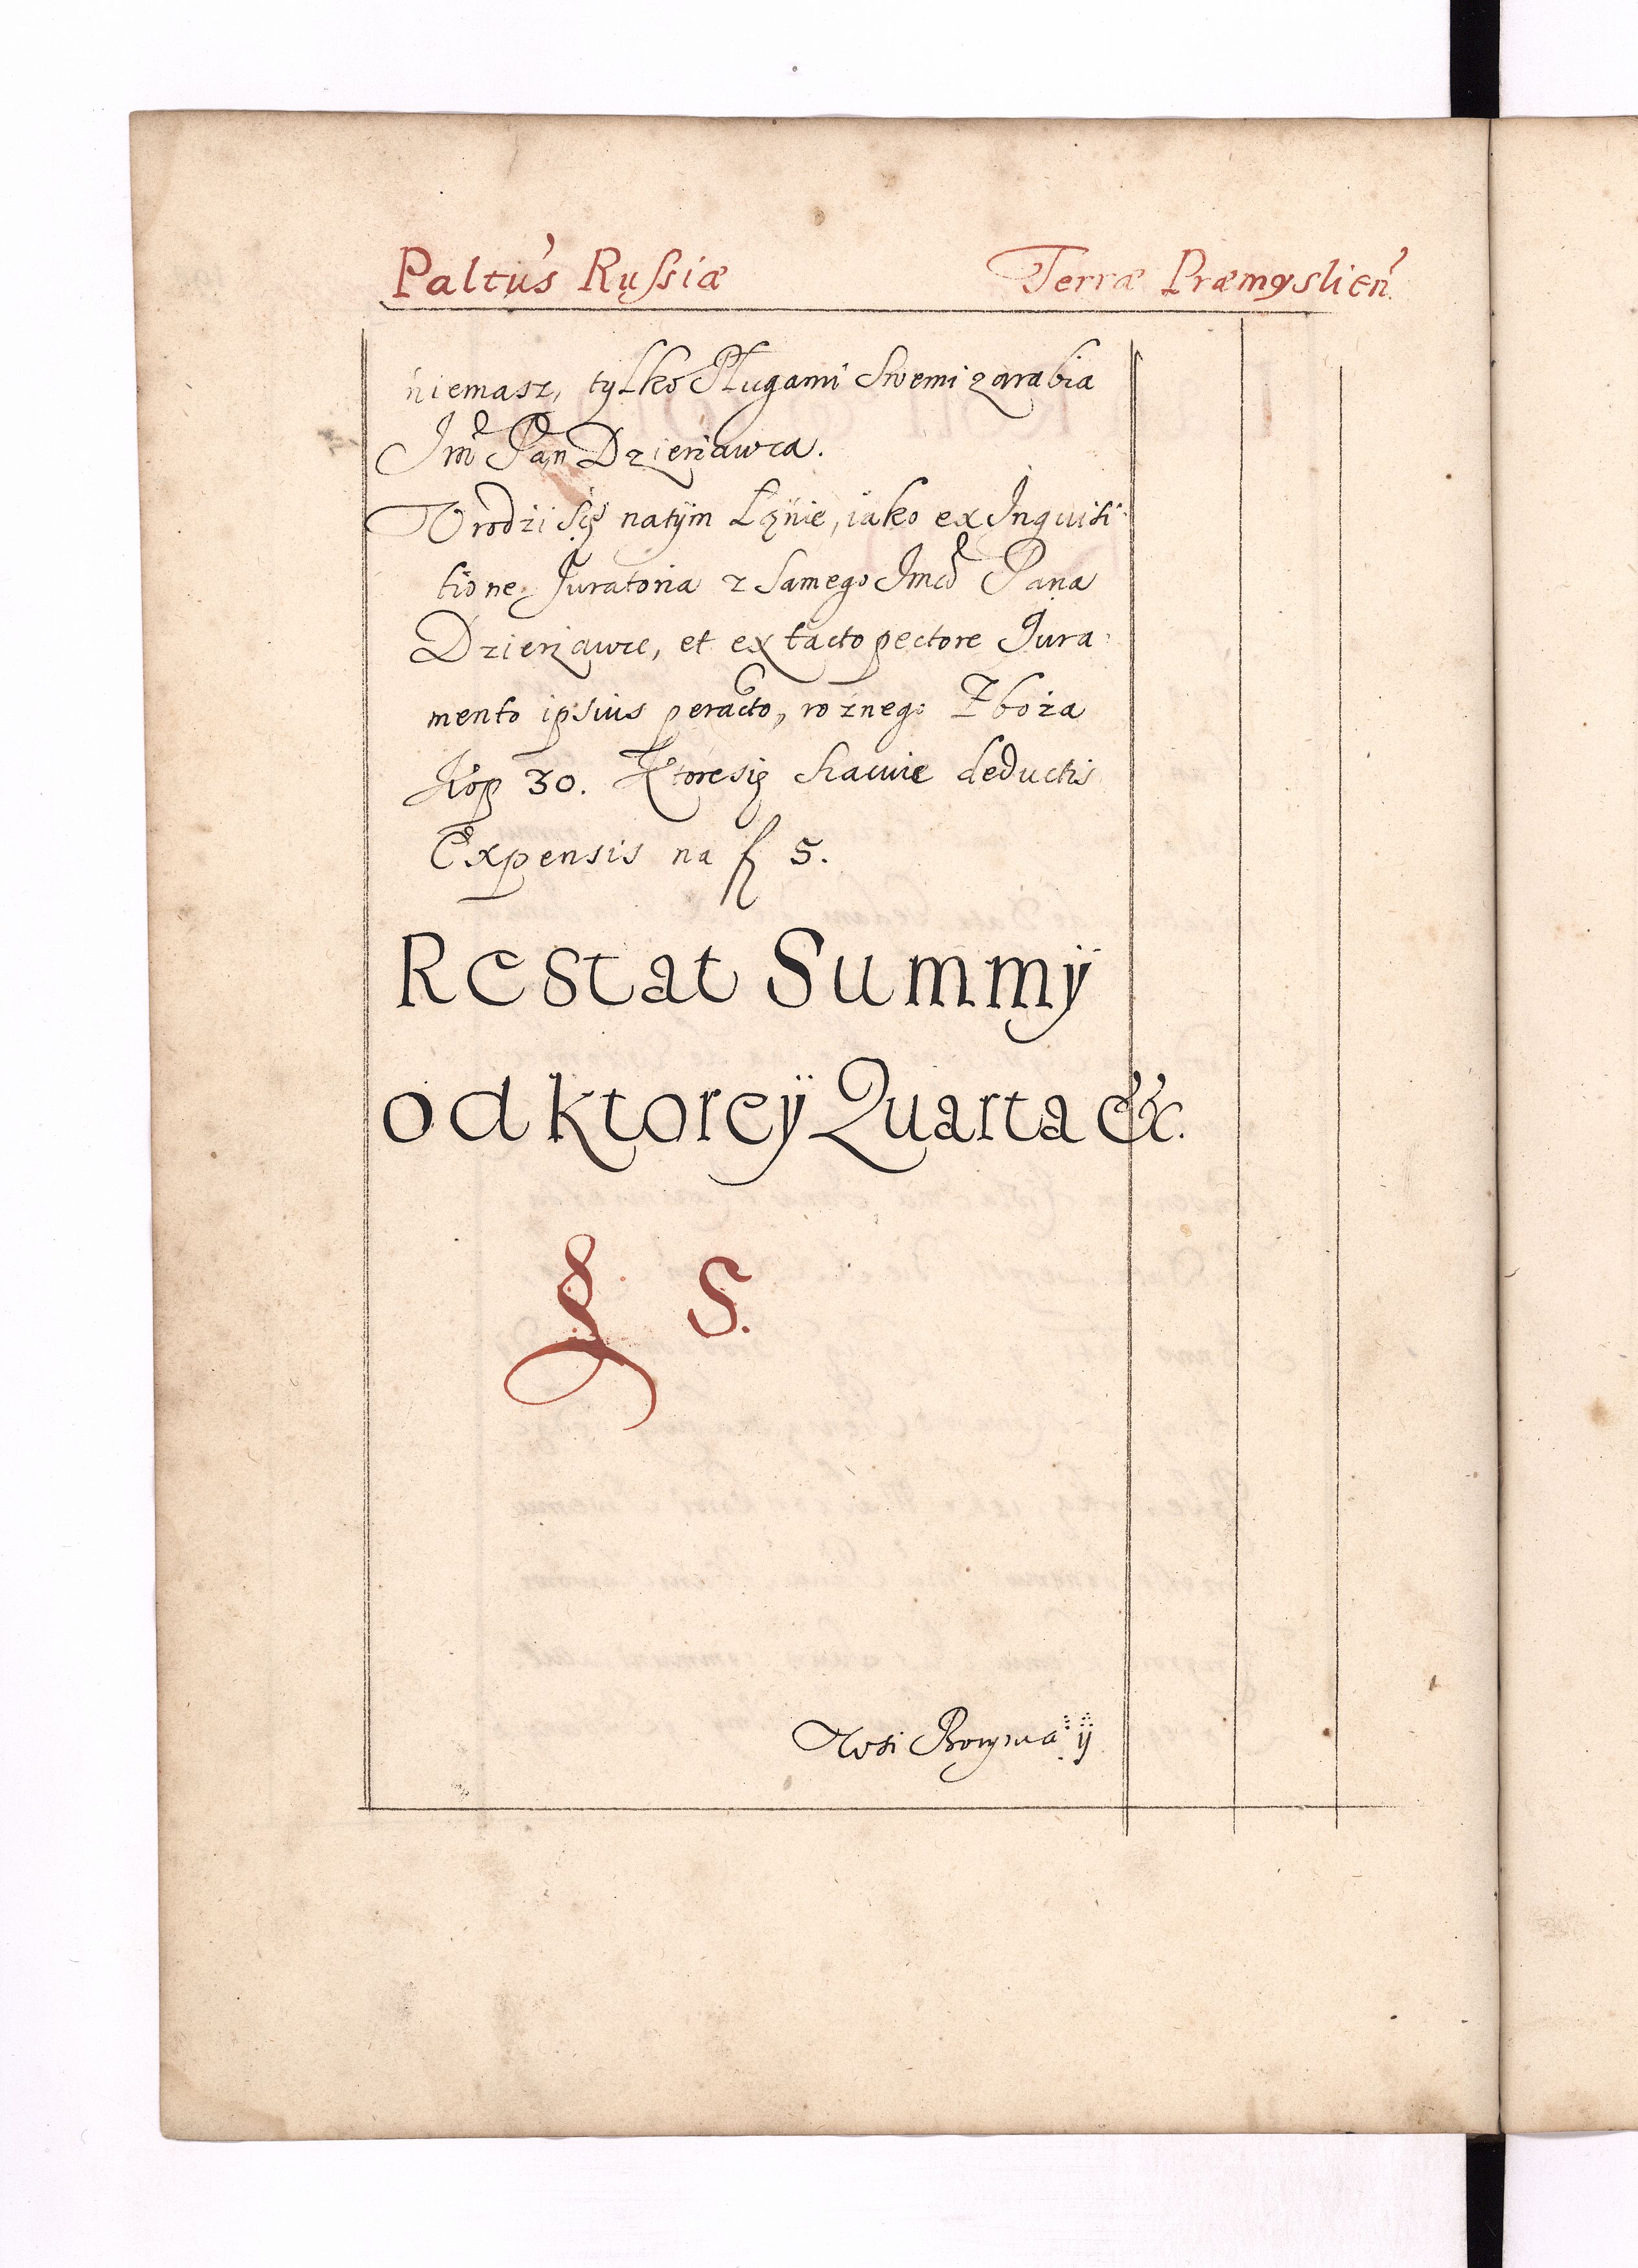 Paltus Rußiæ Terræ Præmyslien̄
niemasz, tylko Pługami Swemi zarabia
Jm̄ Pan Dzierżawca.
Vrodzi się natÿm Łąnie, iako ex Inquisi
tione Juratoria z Samego Jmci Pana
Dzierżawce, et ex tacto pectore Jura:
mento ipsius peracto, rożnego Zboża
Kop 30. Ktore się Szacuie deductis
Expensis na fl 5.
Restat Summÿ
od ktoreÿ Quarta &c.
fl 5.